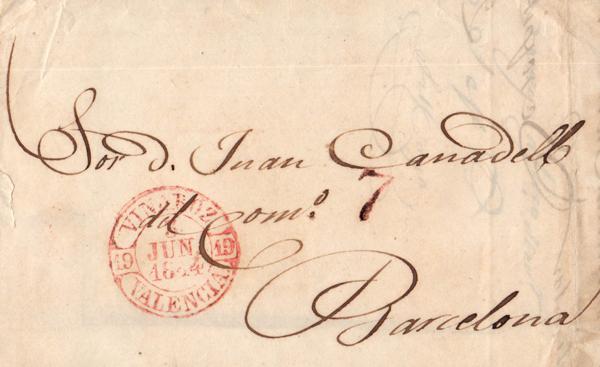 Sor. d. Juan Canadell
del Como. 7
Barcelona
VINAROZ
19 JUN 19
1844
VALENCIA